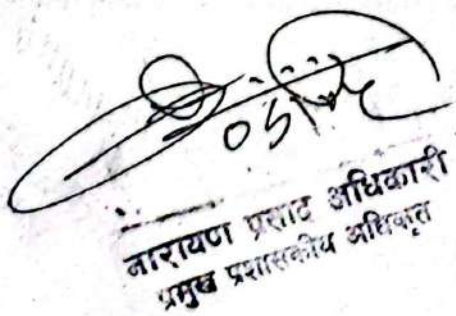 नारायण प्रसाद अधिकारी
प्रमुख प्रशासकीय अधिकृत